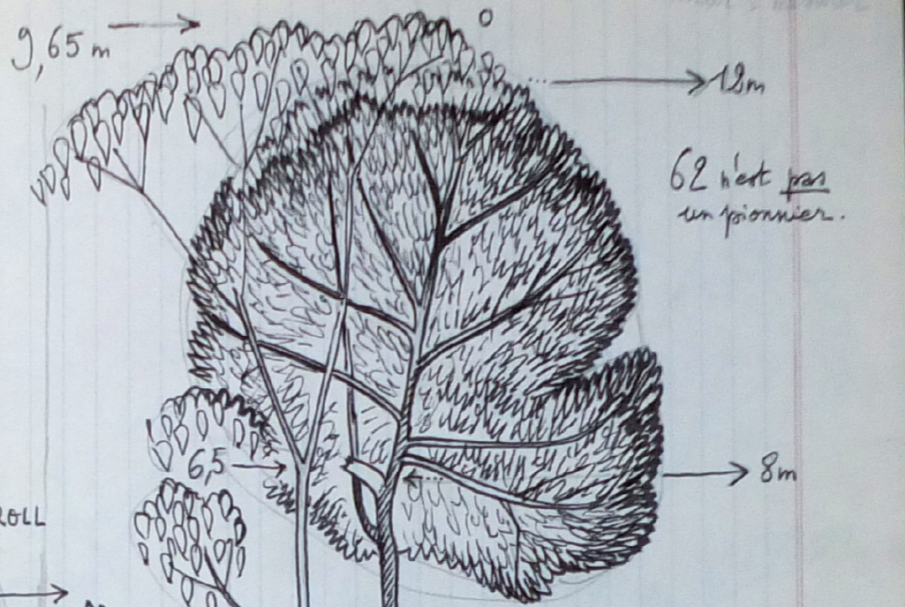 9,65 m
o
12m
62 n'est pas
un pionnier.
6,5
8m
ROLL